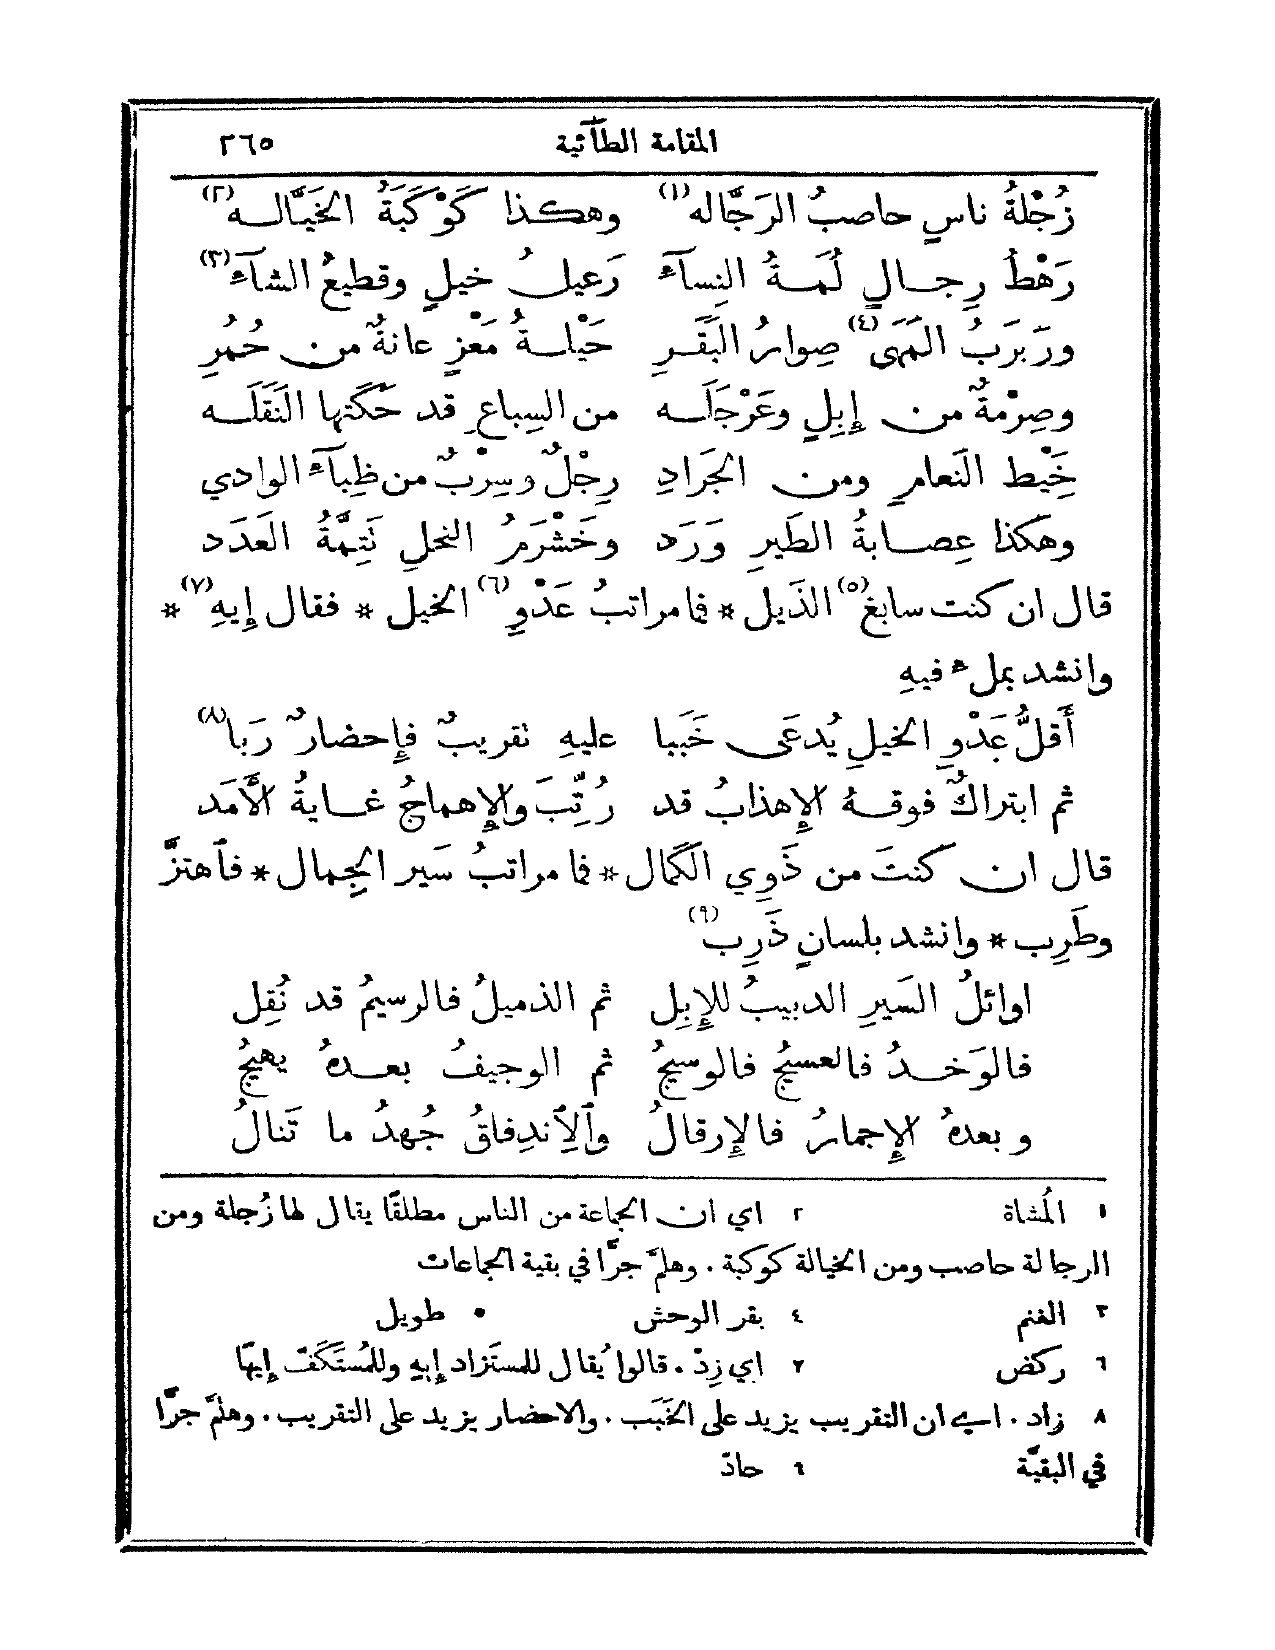 المقامة الطآئية ٣٦٥
زُجْلةُ ناسٍ حاصبُ الرَجَّاله(١) وهكذا كَوْكَبَةُ الخَيَّاله(٢)
رَهْطُ رِجالٍ لُمَةُ النِسآءِ رَعيلُ خيلٍ وقطيعُ الشآءِ(٣)
ورَبرَبُ المَهَى(٤) صِوارُ البَقَرِ حَيْلةُ مَعْزٍ عانةٌ من حُمُرِ
وصِرْمةٌ من إِبِلٍ وعَرْجَلَه من السِباعِ قد حَكَتها النَقَلَه
خَيْط النَعامِ ومن الجَرَادِ رِجْلٌ وسِرْبٌ من ظِبآءِ الوادي
وهكذا عِصابةُ الطَيرِ وَرَد وخَشْرَمُ النحلِ تَتِمَّةُ العَدَد
قال ان كنت سابغَ(٥) الذَيل * فما مراتبُ عَدْوِ(٦) الخيل * فقال إِيهِ(٧) *
وانشد بملءِ فيهِ
أَقلُّ عَدْوِ الخيلِ يُدعَى خَبَبا عليهِ تقريبٌ فإِحضارٌ رَبا(٨)
ثم ابتراكٌ فوقهُ الإِهذابُ قد رُتِّبَ والإِهماجُ غايةُ الأَمَد
قال ان كنتَ من ذَوِي الكَمال * فما مراتبُ سَيرِ الجِمال * فٱهتزَّ
وطَرِب * وانشد بلسانٍ ذَرِب(٩)
اوائلُ السَيرِ الدبيبُ للإِبِل ثم الذميلُ فالرسيمُ قد نُقِل
فالوَخدُ فالعسيجُ فالوسيجُ ثم الوجيفُ بعدهُ يهيجُ
وبعدهُ الإِجمارُ فالإِرقالُ وٱلٱندِفاقُ جُهدُ ما تَنالُ
١ المُشاة ٢ اي ان الجماعة من الناس مطلقًا يقال لها زُجلة ومن
الرجالة حاصب ومن الخيالة كوكبة . وهلمَّ جرًّا في بقية الجماعات
٣ الغنم ٤ بقر الوحش ٥ طويل
٦ ركض ٧ اي زِدْ . قالوا يُقال للمستَزاد إِيهِ وللمُستَكَفّ إِيهًا
٨ زاد . اي ان التقريب يزيد على الخَبَب . والاحضار يزيد على التقريب . وهلمَّ جرًّا
في البقيَّة ٩ حادّ